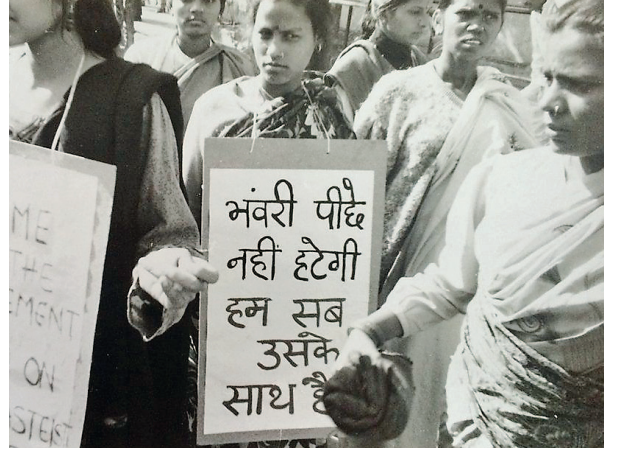 ME
THE
EMENT
ON
भंवरी पीछे
नहीं हटेगी
हम सब
उसके
साथ है